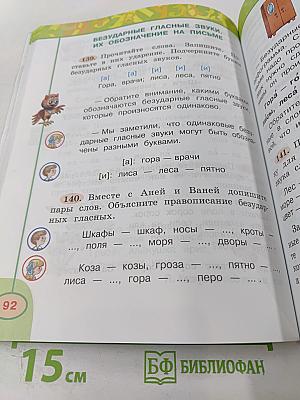 БЕЗУДАРНЫЕ ГЛАСНЫЕ ЗВУКИ,
ИХ ОБОЗНАЧЕНИЕ НА ПИСЬМЕ
139. Прочитайте слова. Запишите,
ставьте в них ударение. Подчеркните буквы
безударных гласных звуков.
[а] [а] [и] [и] [и]
гора, врачи, лиса, леса, пятно
— Обратите внимание, какими буквами
обозначаются безударные гласные звуки,
которые произносятся одинаково.
— Мы заметили, что одинаковые безу-
дарные гласные звуки могут быть обозна-
чены разными буквами.
[а]: гора — врачи
[и]: лиса — леса — пятно
140. Вместе с Аней и Ваней допишите
пары слов. Объясните правописание безудар-
ных гласных.
Шкафы — шкаф, носы — ..., кроты —
..., поля — ..., моря — ..., дворы — ... .
Коза — козы, гроза — ..., пятно — ...,
лиса — ..., гора — ..., перо — ... .
92
141.
15 см
БФ БИБЛИОФАН